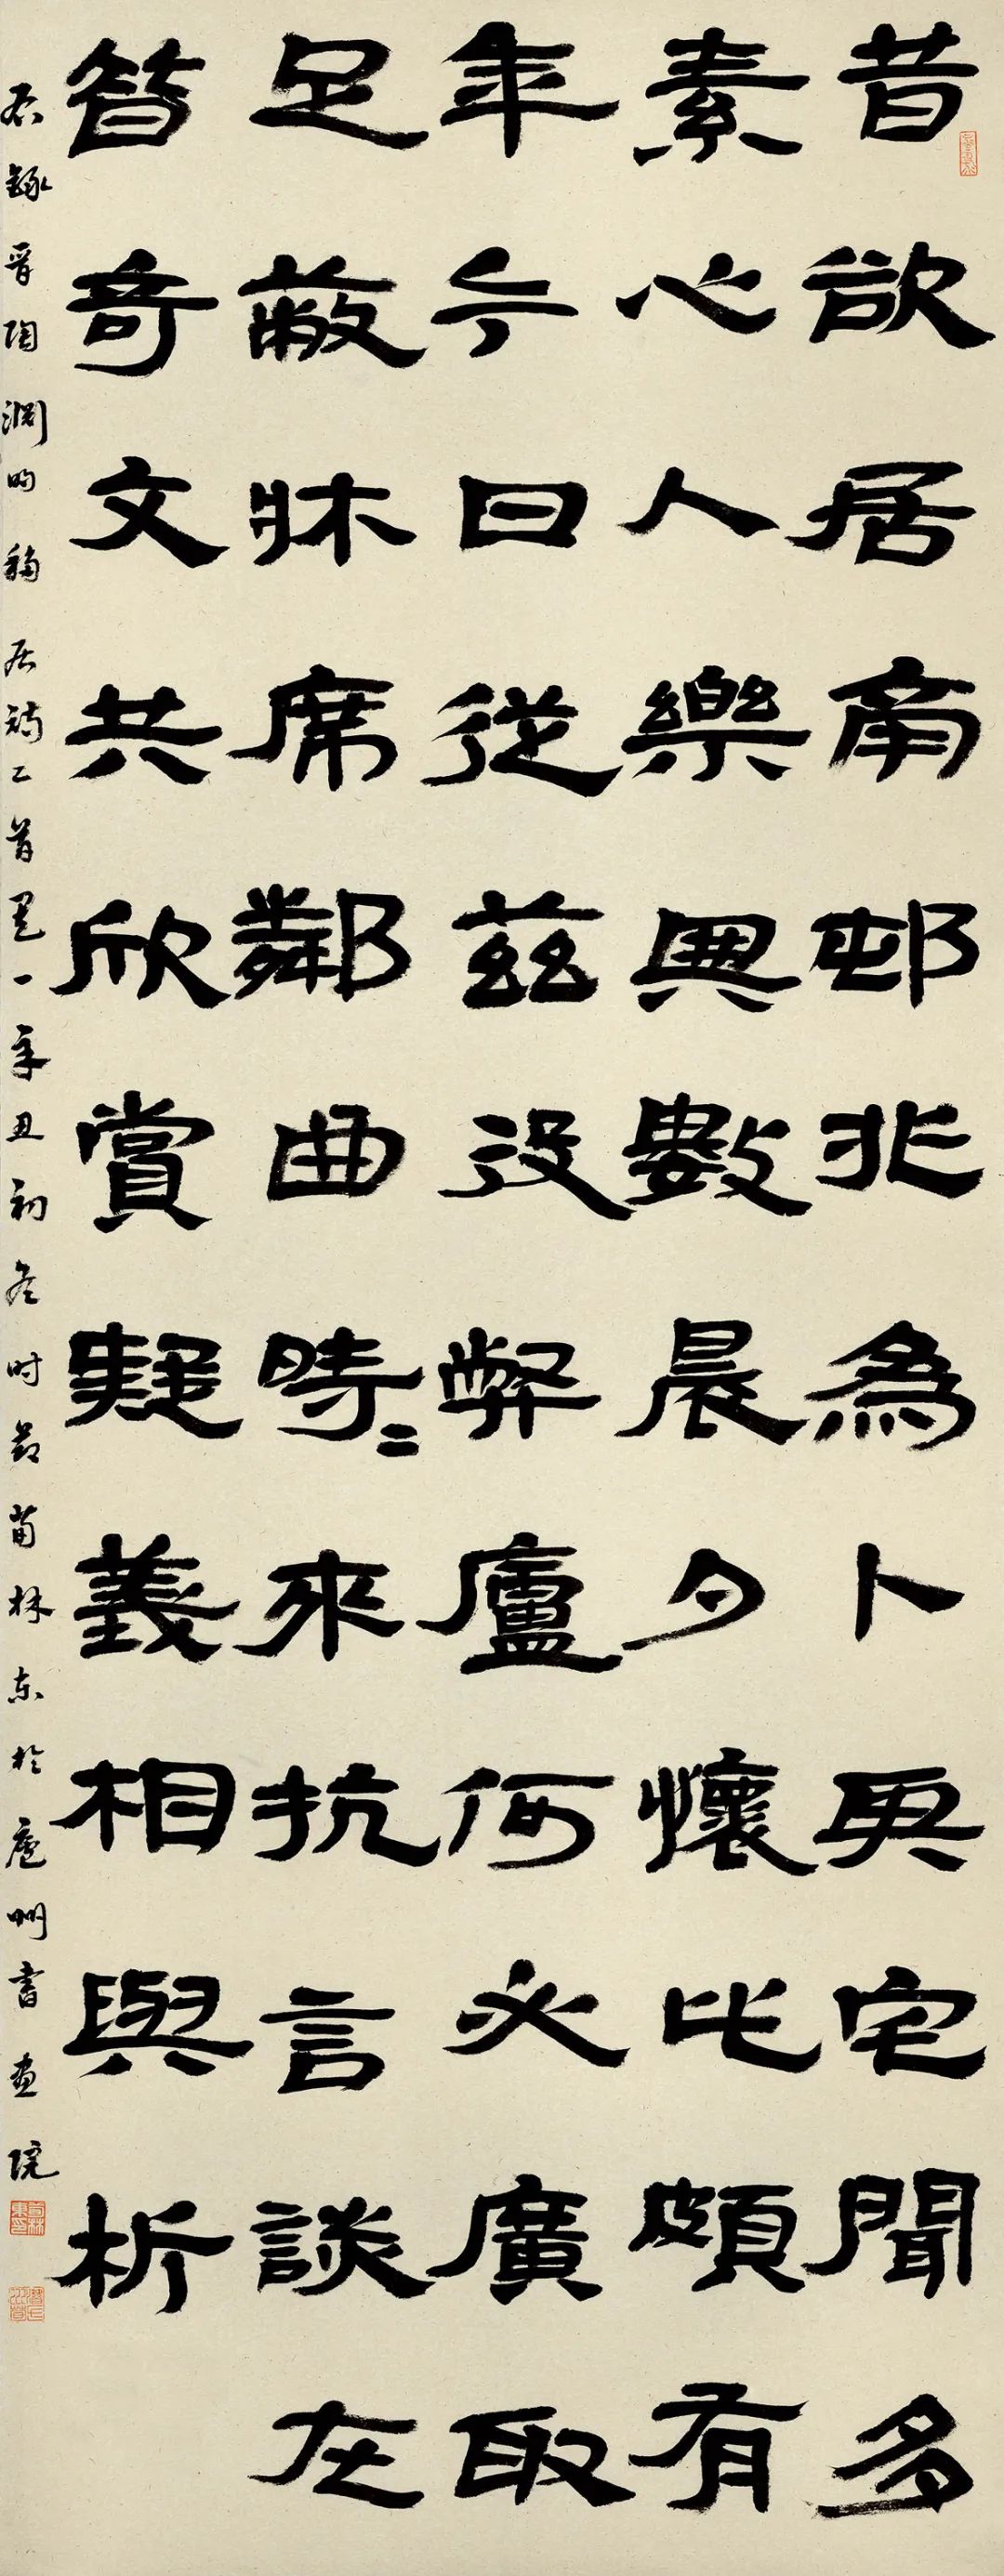 昔欲居南邨非為卜其宅聞多
素心人樂與數晨夕懷此頗有
年今日從茲役弊廬何必廣取
足蔽牀席鄰曲時二來抗言談在
昔奇文共欣賞疑義相與析
右錄晋陶淵明移居詩二首其一辛丑初冬时节苗林东於庐州書画院